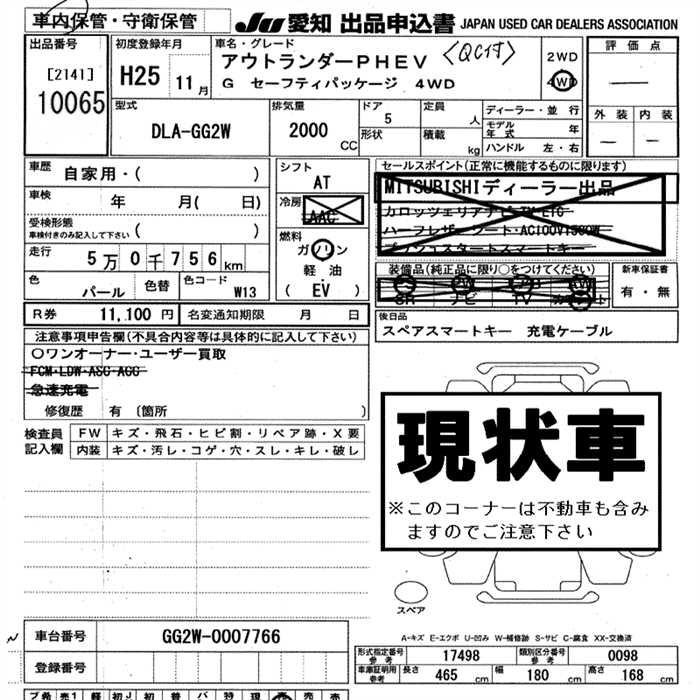 車内保管・守衛保管
JU 愛知 出品申込書 JAPAN USED CAR DEALERS ASSOCIATION
出品番号
[2141]
10065
初度登録年月
H25 11月
車名・グレード
アウトランダーPHEV 〈QC付〉
G セーフティパッケージ 4WD
2WD
4WD
評価点
—
外装 内装
— —
型式
DLA-GG2W
排気量
2000 CC
ドア
5
形状
定員
人
積載
kg
ディーラー・並行
モデル年式 年
ハンドル 左・右
車歴
自家用・( )
車検 年 月( 日)
受検形態
車検付きのみ記入して下さい ・( )
走行 5万0千756km
色 パール
色替
色コード W13
シフト
AT
冷房
AAC
燃料
ガソリン
軽油
( EV )
セールスポイント(正常に機能するものに限ります)
MITSUBISHIディーラー出品
カロッツェリアナビ・TV・ETC
ハーフレザーシート・AC100V1500W
プッシュスタートスマートキー
装備品(純正品に限り○をつけてください)
SR ナビ TV
新車保証書
有・無
R券 11,100円 名変通知期限 月 日
後日品
スペアスマートキー 充電ケーブル
注意事項申告欄(不具合内容等は具体的に記入して下さい)
○ワンオーナー・ユーザー買取
FCM・LDW・ASC・ACC
急速充電
修復歴 有〔箇所 〕
検査員記入欄
FW キズ・飛石・ヒビ割・リペア跡・X要
内装 キズ・汚レ・コゲ・穴・スレ・キレ・破レ
現状車
※このコーナーは不動車も含み
ますのでご注意下さい
スペア
A-キズ E-エクボ U-凹み W-補修跡 S-サビ C-腐食 XX-交換済
車台番号 GG2W-0007766
登録番号
形式指定番号 参考 17498 類別区分番号 参考 0098
車庫証明用 参考 長さ 465 cm 幅 180 cm 高さ 168 cm